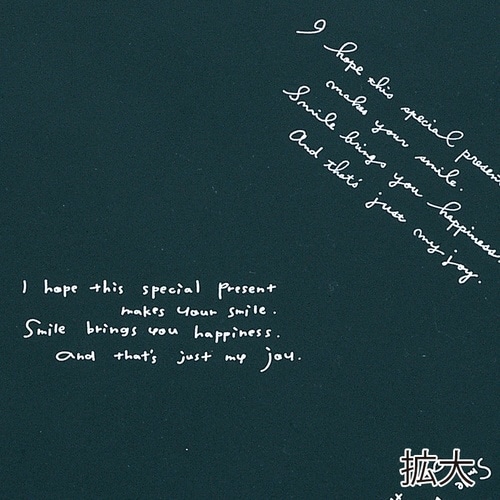 I hope this special present
makes your smile.
Smile brings you happiness.
And that's just my joy.
I hope this special present
makes your smile.
Smile brings you happiness.
And that's just my joy.
拡大